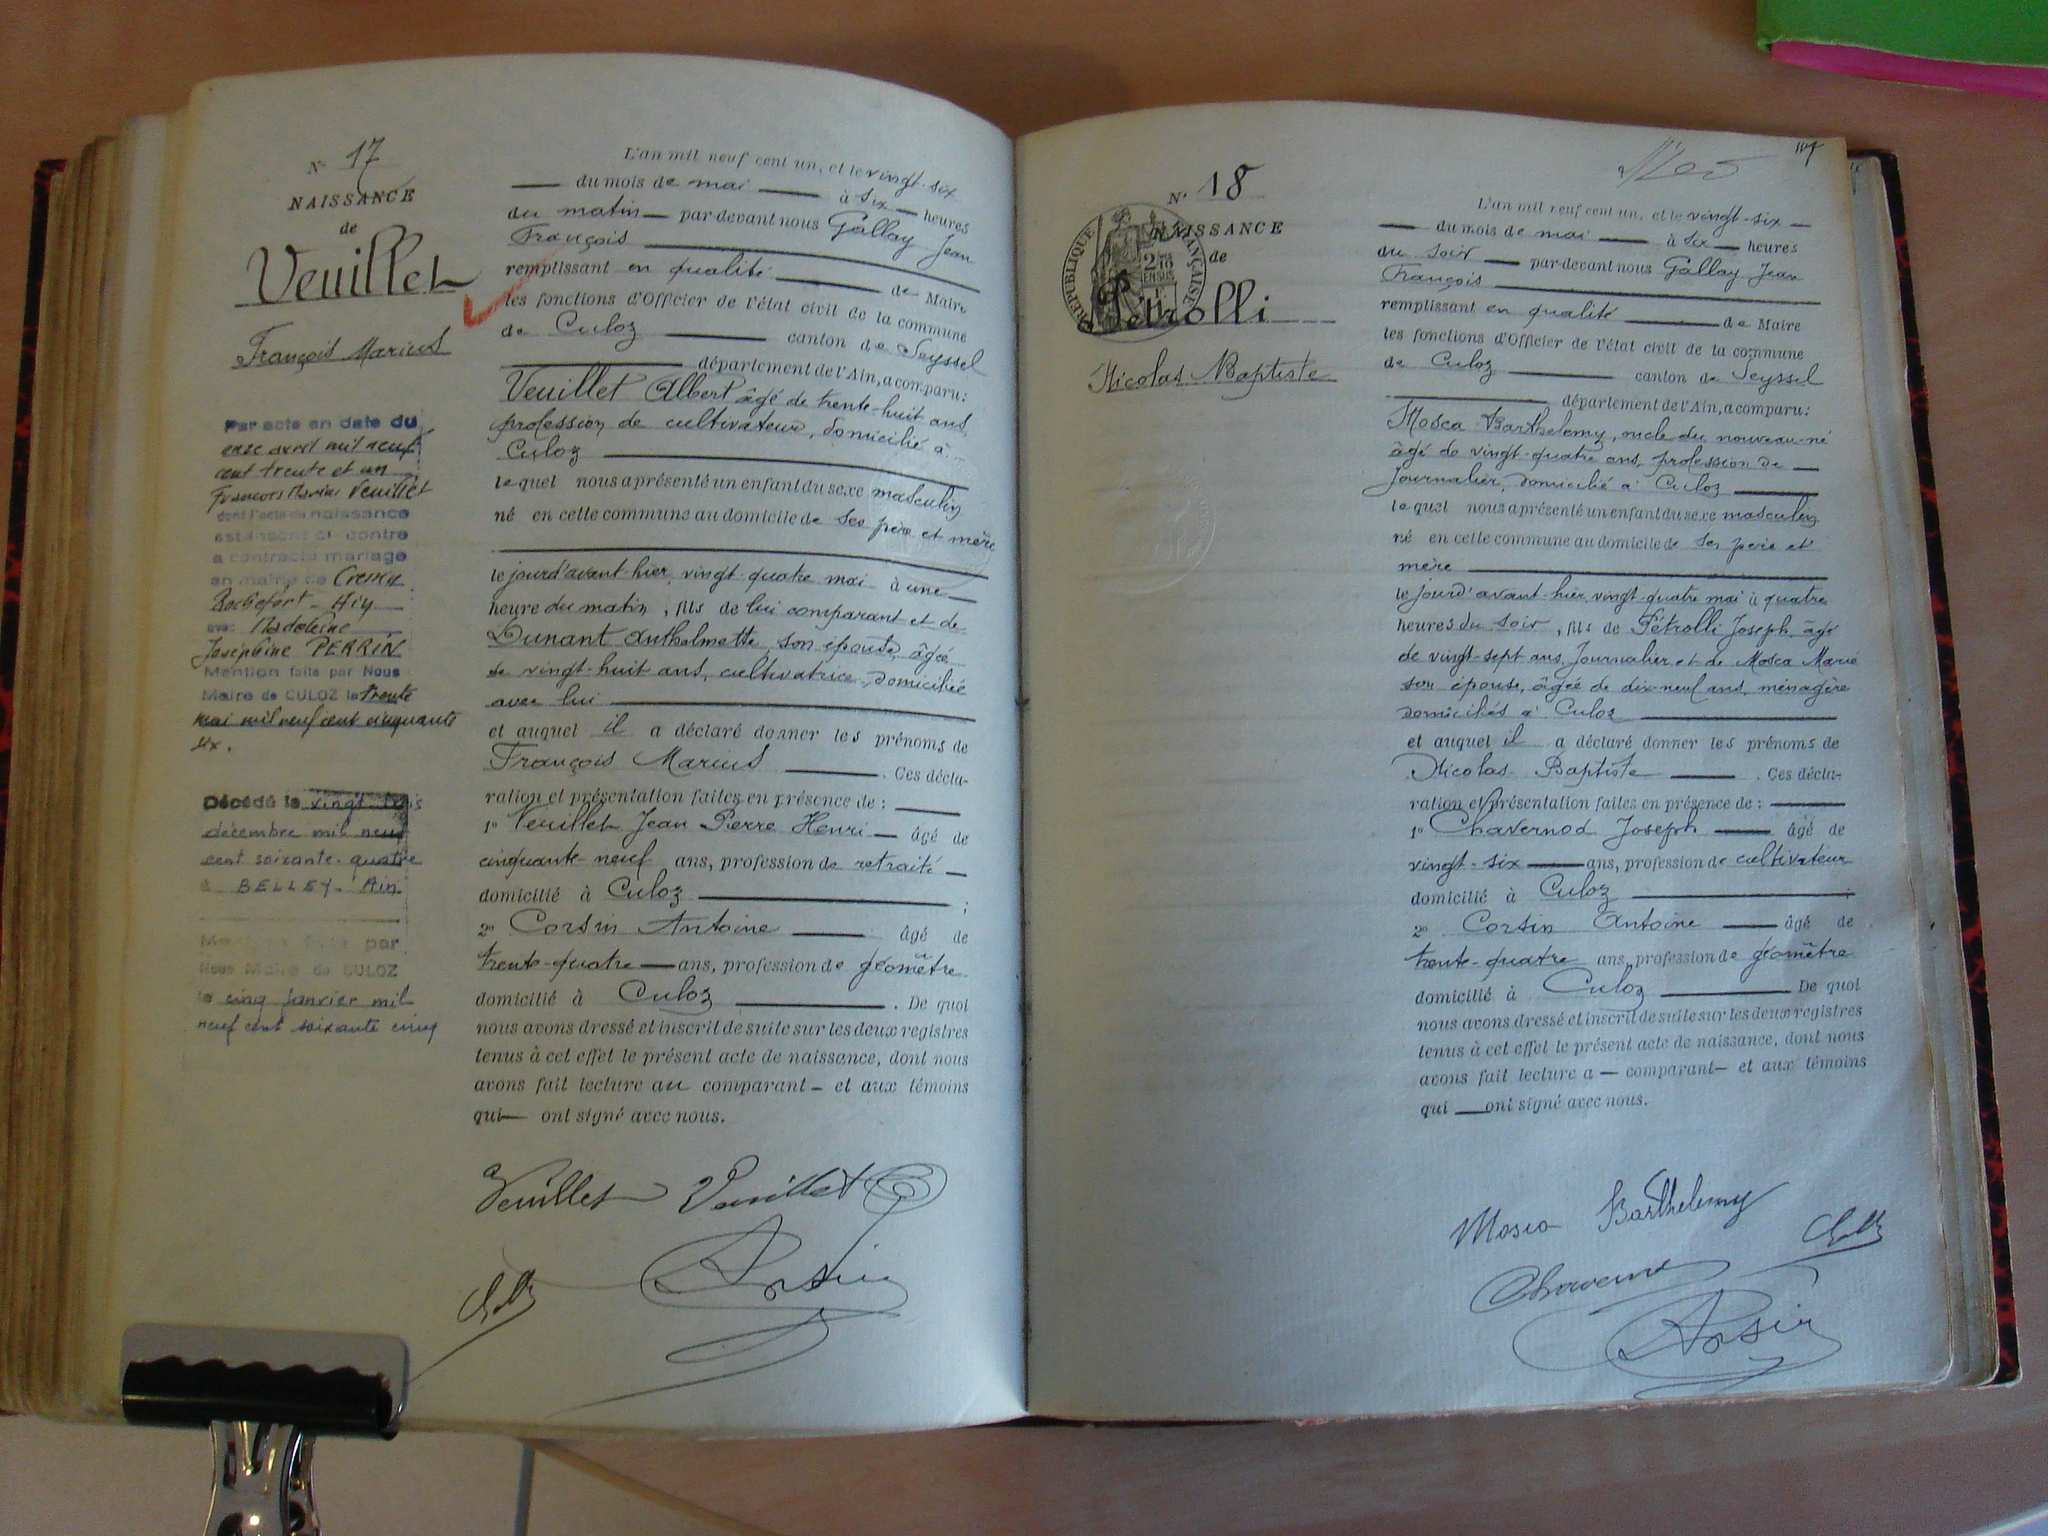 N° 17
NAISSANCE
de
Veuillet
François Marius
Par acte en date du
onze avril mil neuf
cent trente et un
François Marius Veuillet
dont l'acte de naissance
est inscrit ci contre
a contracté mariage
en mairie de
Rochefort
avec Madeleine
Joséphine PERRIN
Mention faite par Nous
Maire de CULOZ le trente
mai mil neuf cent cinquante
six.
Décédé le vingt trois
décembre mil neuf
cent soixante-quatre
à BELLEY - Ain
Mention faite par
Nous Maire de CULOZ
le cinq janvier mil
neuf cent soixante cinq
L'an mil neuf cent un, et le vingt-six
du mois de mai à six heures
du matin par-devant nous Gallay Jean
François
remplissant en qualité de Maire
les fonctions d'Officier de l'état civil de la commune
de Culoz canton de Seyssel
département de l'Ain, a comparu:
Veuillet Albert âgé de trente-huit ans,
profession de cultivateur, domicilié à
Culoz
lequel nous a présenté un enfant du sexe masculin
né en cette commune au domicile de ses père et mère
le jourd'avant-hier, vingt-quatre mai à une
heure du matin, fils de lui comparant et de
Dunant Anthelmette, son épouse, âgée
de vingt-huit ans, cultivatrice, domiciliée
avec lui
et auquel il a déclaré donner les prénoms de
François Marius . Ces décla-
ration et présentation faites en présence de :
1° Veuillet Jean Pierre Henri âgé de
cinquante-neuf ans, profession de retraité
domicilié à Culoz ;
2° Corsin Antoine âgé de
trente-quatre ans, profession de géomètre
domicilié à Culoz . De quoi
nous avons dressé et inscrit de suite sur les deux registres
tenus à cet effet le présent acte de naissance, dont nous
avons fait lecture au comparant et aux témoins
qui ont signé avec nous.
Veuillet Veuillet
Corsin
N° 18
NAISSANCE
de
RÉPUBLIQUE FRANÇAISE
Pétrolli
Nicolas Baptiste
L'an mil neuf cent un, et le vingt-six
du mois de mai à six heures
du soir par-devant nous Gallay Jean
François
remplissant en qualité de Maire
les fonctions d'Officier de l'état civil de la commune
de Culoz canton de Seyssel
département de l'Ain, a comparu:
Mosca Barthelemy, oncle du nouveau-né
âgé de vingt-quatre ans, profession de
Journalier, domicilié à Culoz
lequel nous a présenté un enfant du sexe masculin
né en cette commune au domicile de ses père et
mère
le jourd'avant-hier, vingt-quatre mai à quatre
heures du soir, fils de Pétrolli Joseph, âgé
de vingt-sept ans, Journalier et de Mosca Marie
son épouse, âgée de dix-neuf ans, ménagère
domiciliés à Culoz
et auquel il a déclaré donner les prénoms de
Nicolas Baptiste . Ces décla-
ration et présentation faites en présence de :
1° Chavernod Joseph âgé de
vingt-six ans, profession de cultivateur
domicilié à Culoz ;
2° Corsin Antoine âgé de
trente-quatre ans, profession de géomètre
domicilié à Culoz De quoi
nous avons dressé et inscrit de suite sur les deux registres
tenus à cet effet le présent acte de naissance, dont nous
avons fait lecture a comparant et aux témoins
qui ont signé avec nous.
Mosca Barthelemy
Corsin